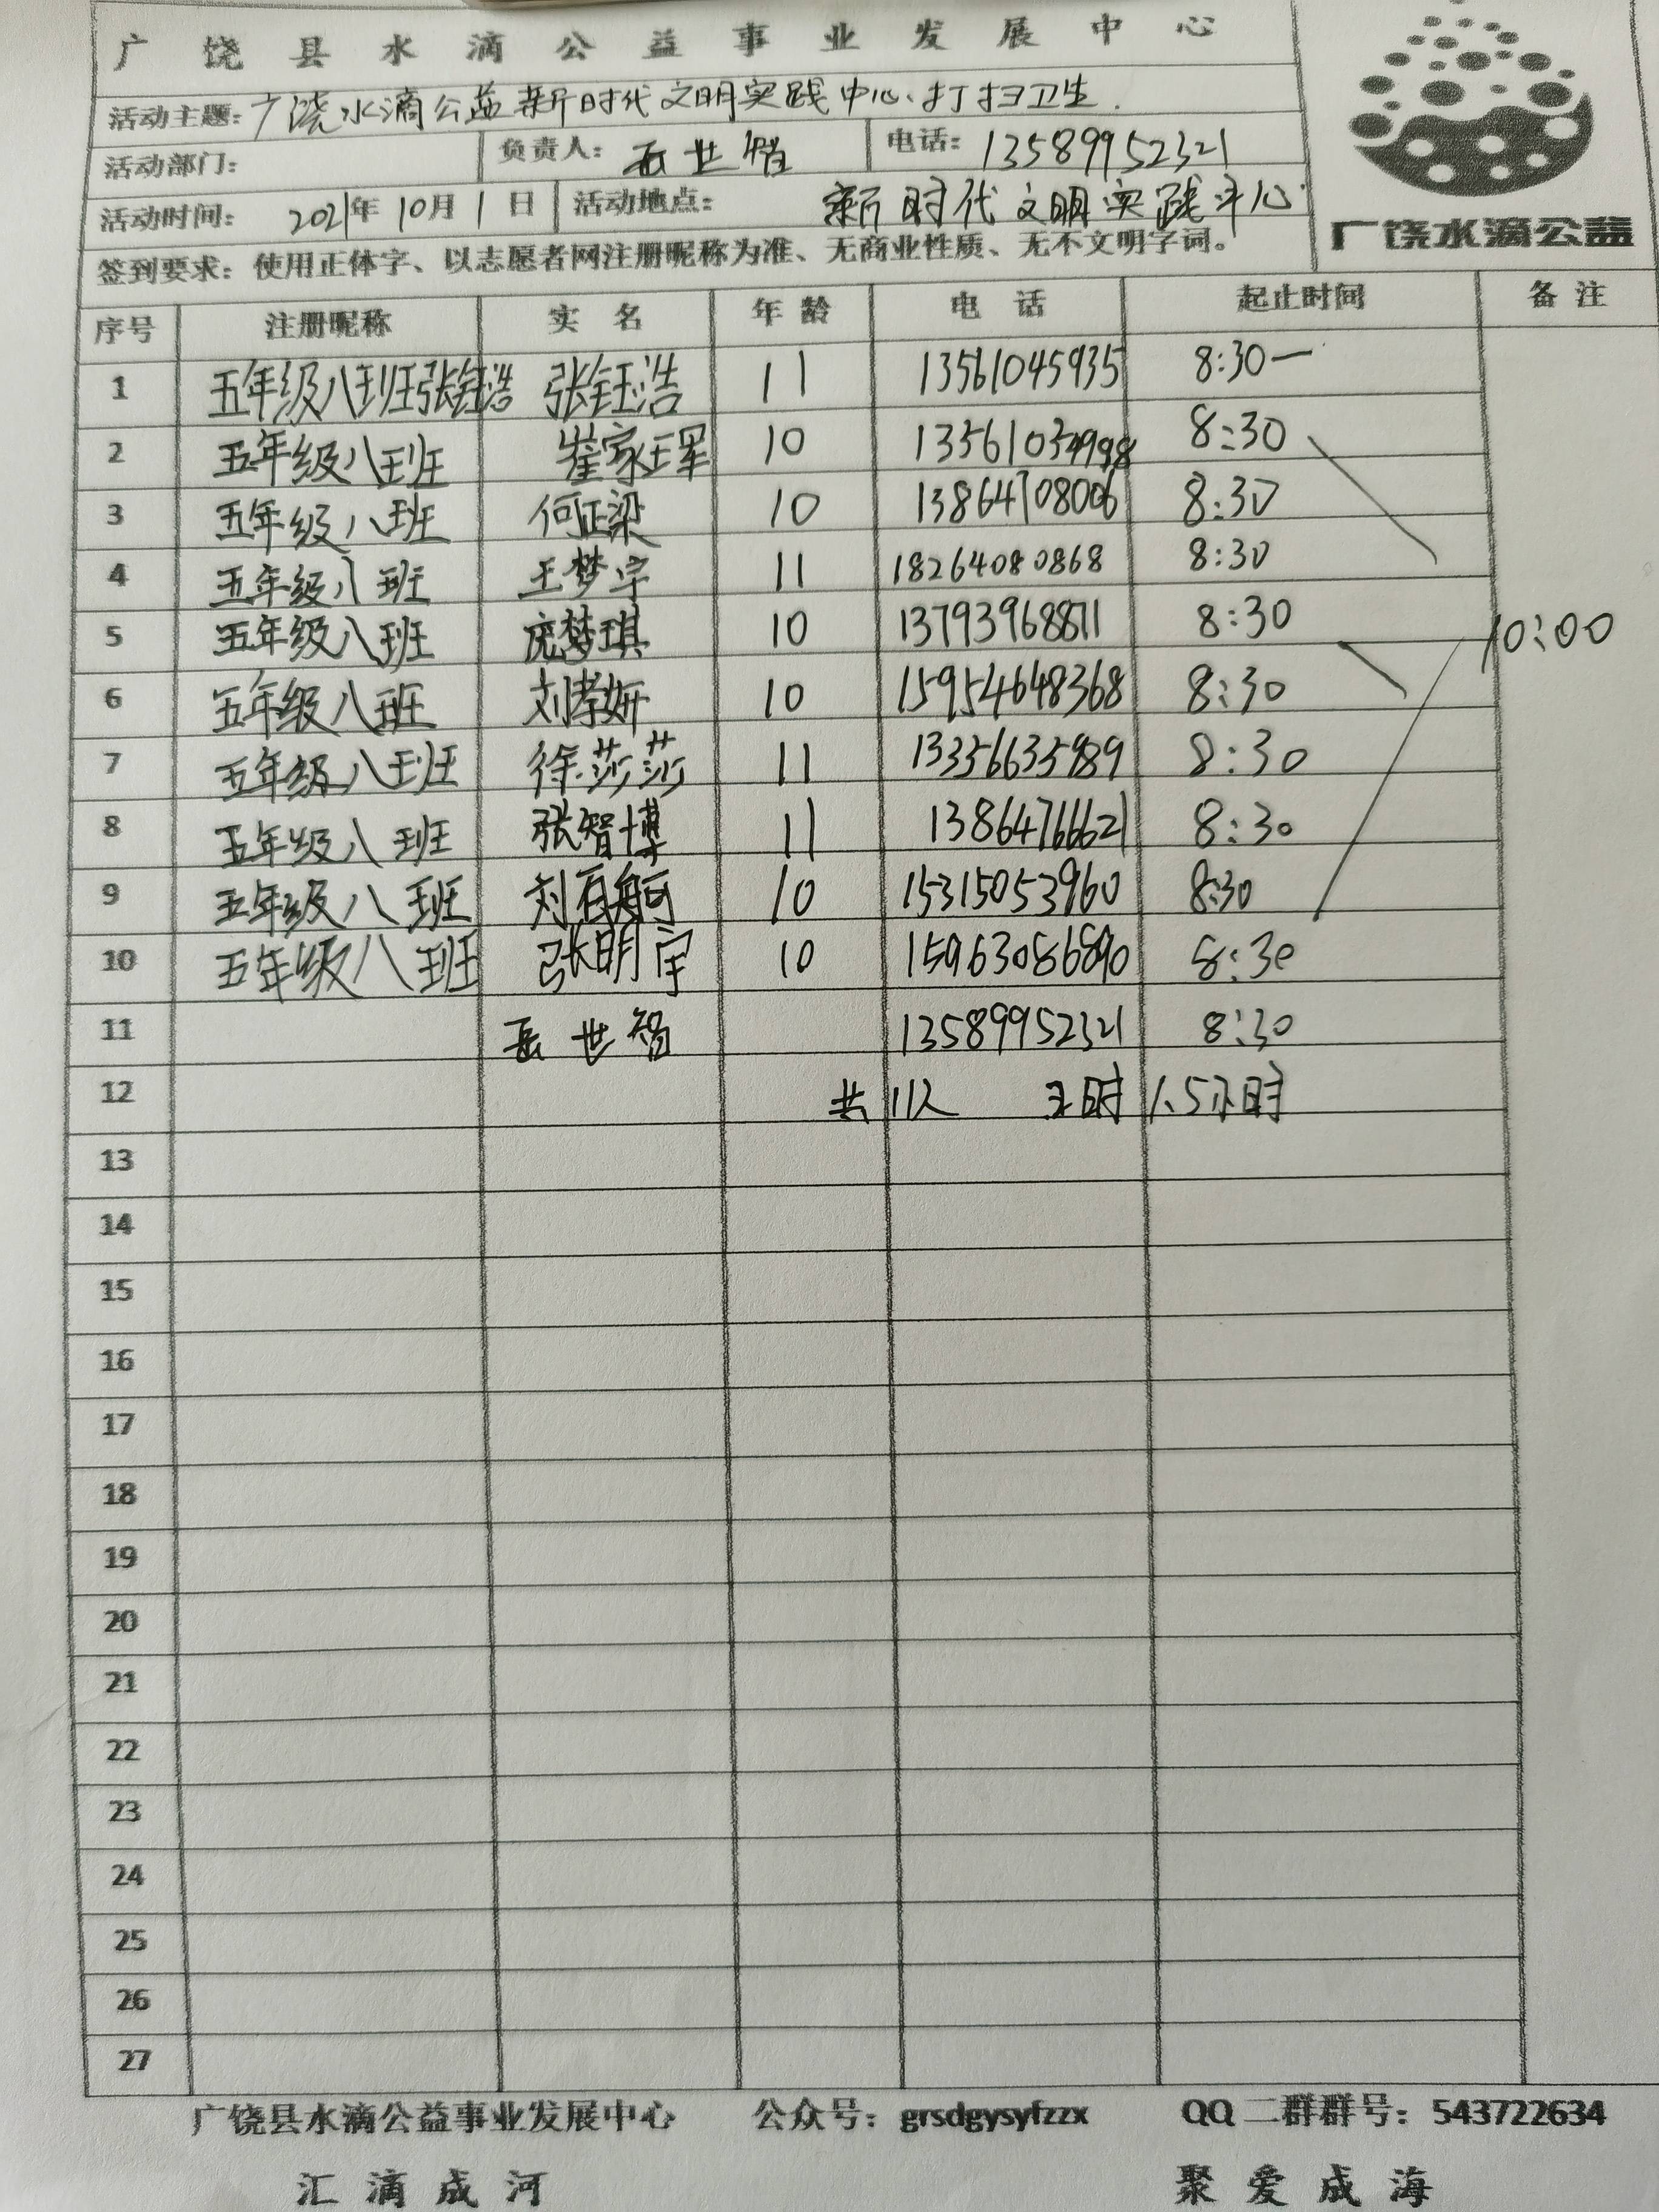 广饶县水滴公益事业发展中心
活动主题：广饶水滴公益新时代文明实践中心、打扫卫生.
活动部门： 负责人：岳世智 电话：13589952321
活动时间：2021年10月1日 活动地点：新时代文明实践中心
签到要求：使用正体字、以志愿者网注册昵称为准、无商业性质、无不文明字词。
广饶水滴公益
序号 注册昵称 实名 年龄 电话 起止时间 备注
1 五年级八班张钰浩 张钰浩 11 13561045935 8:30—
2 五年级八班 崔家珲 10 8:30
3 五年级八班 何正梁 10 13864708006 8:30
4 五年级八班 王梦宇 11 18264080868 8:30
5 五年级八班 庞梦琪 10 13793968871 8:30 10:00
6 五年级八班 刘孝妍 10 15954648368 8:30
7 五年级八班 徐莎莎 11 13356635989 8:30
8 五年级八班 张智博 11 13864766621 8:30
9 五年级八班 10 15315053960 8:30
10 五年级八班 张明宇 10 15963086890 8:30
11 岳世智 13589952321 8:30
12 共11人 工时1.5小时
13
14
15
16
17
18
19
20
21
22
23
24
25
26
27
广饶县水滴公益事业发展中心 公众号：grsdgysyfzzx QQ二群群号：543722634
汇滴成河 聚爱成海